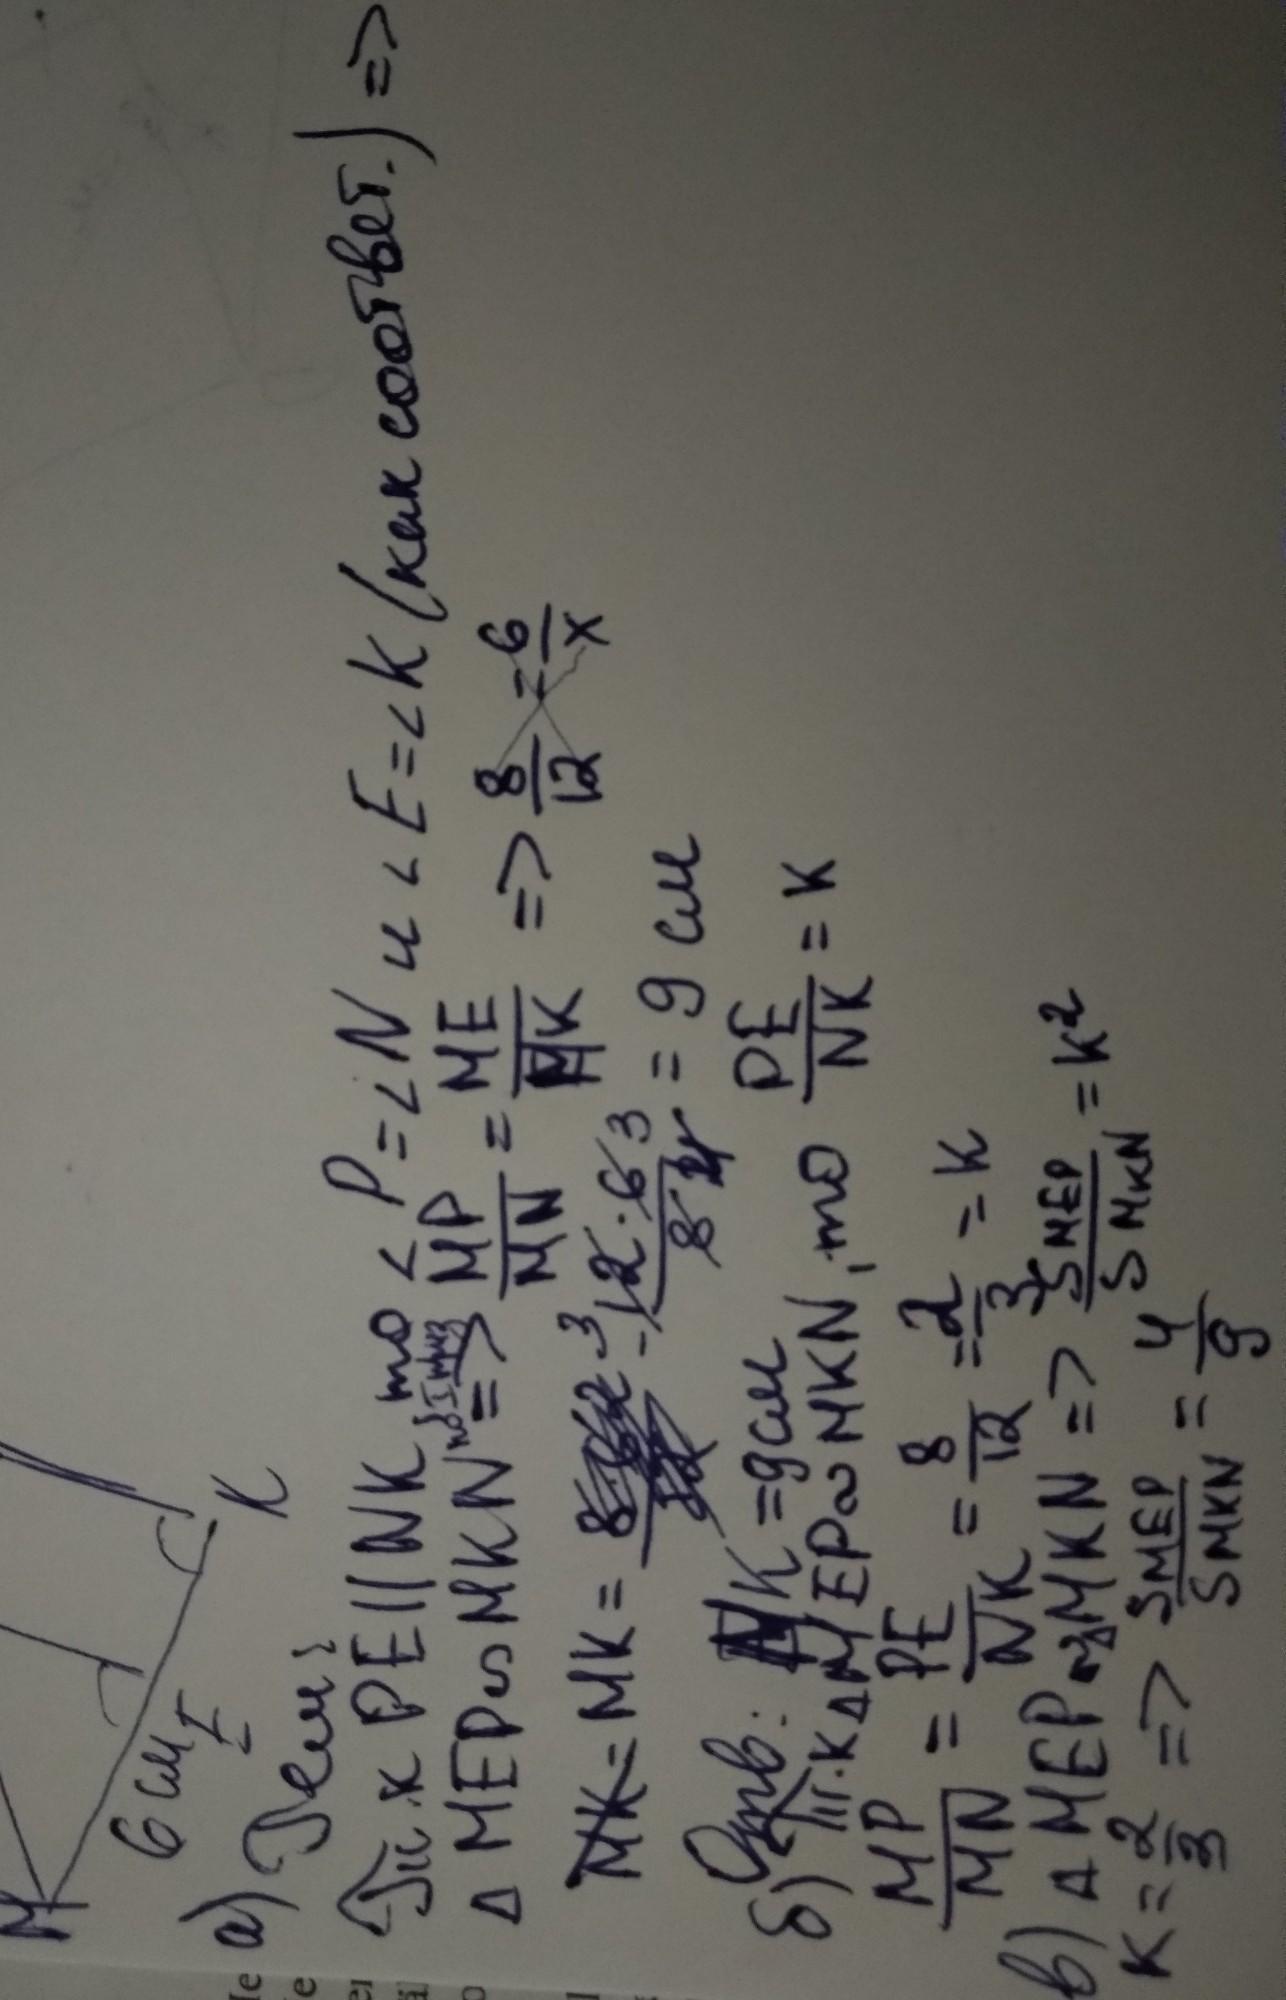 M
6 см
E
K
а) Реш:
Т.к PE || NK то < P = < N и < E = < K (как соответ.) =>
Δ MEP ∾ MKN => MP/MN = ME/MK => 8/12 = 6/x
MK = 12·6/8 = 9 см
Отв: MK = 9 см
б) Т.к Δ MEP ∾ MKN, то PE/NK = K
MP/MN = PE/NK = 8/12 = 2/3 = K
в) Δ MEP ∾ Δ MKN => SMEP/SMKN = K²
K = 2/3 => SMEP/SMKN = 4/9